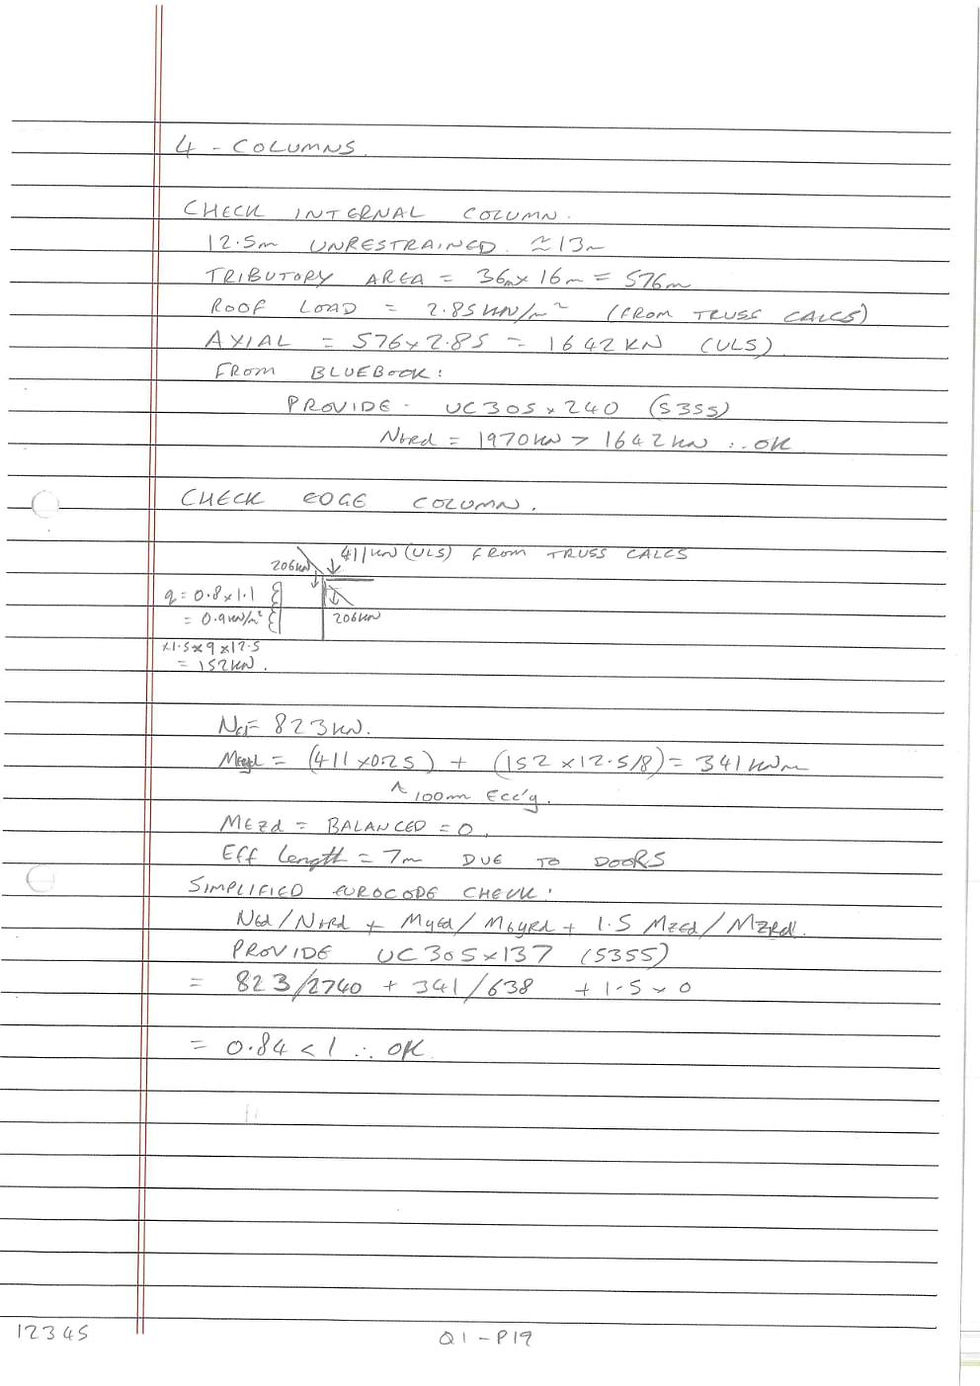 4 - COLUMNS.
CHECK INTERNAL COLUMN.
12.5m UNRESTRAINED. ≈13m
TRIBUTORY AREA = 36m x 16m = 576m
ROOF LOAD = 2.85KN/m² (FROM TRUSS CALCS)
AXIAL = 576 x 2.85 = 1642KN (ULS)
FROM BLUEBOOK:
PROVIDE - UC305 x 240 (S355)
Nbrd = 1970KN > 1642KN ∴ OK
CHECK EDGE COLUMN.
411KN (ULS) FROM TRUSS CALCS
206KN
q = 0.8 x 1.1
= 0.9KN/m²
206KN
x1.5 x 9 x 12.5
= 152KN.
= 823KN.
= (411 x 0.25) + (152 x 12.5/8) = 341KNm
^ 100mm Ecc'y.
MEzd = BALANCED = 0.
Eff Length = 7m DUE TO DOORS
SIMPLIFIED EUROCODE CHECK:
NEd/NbRd + MyEd/MbyRd + 1.5 MzEd/MzRd.
PROVIDE UC305 x 137 (S355)
= 823/2740 + 341/638 + 1.5 x 0
= 0.84 < 1 ∴ OK.
12345
Q1 - P19